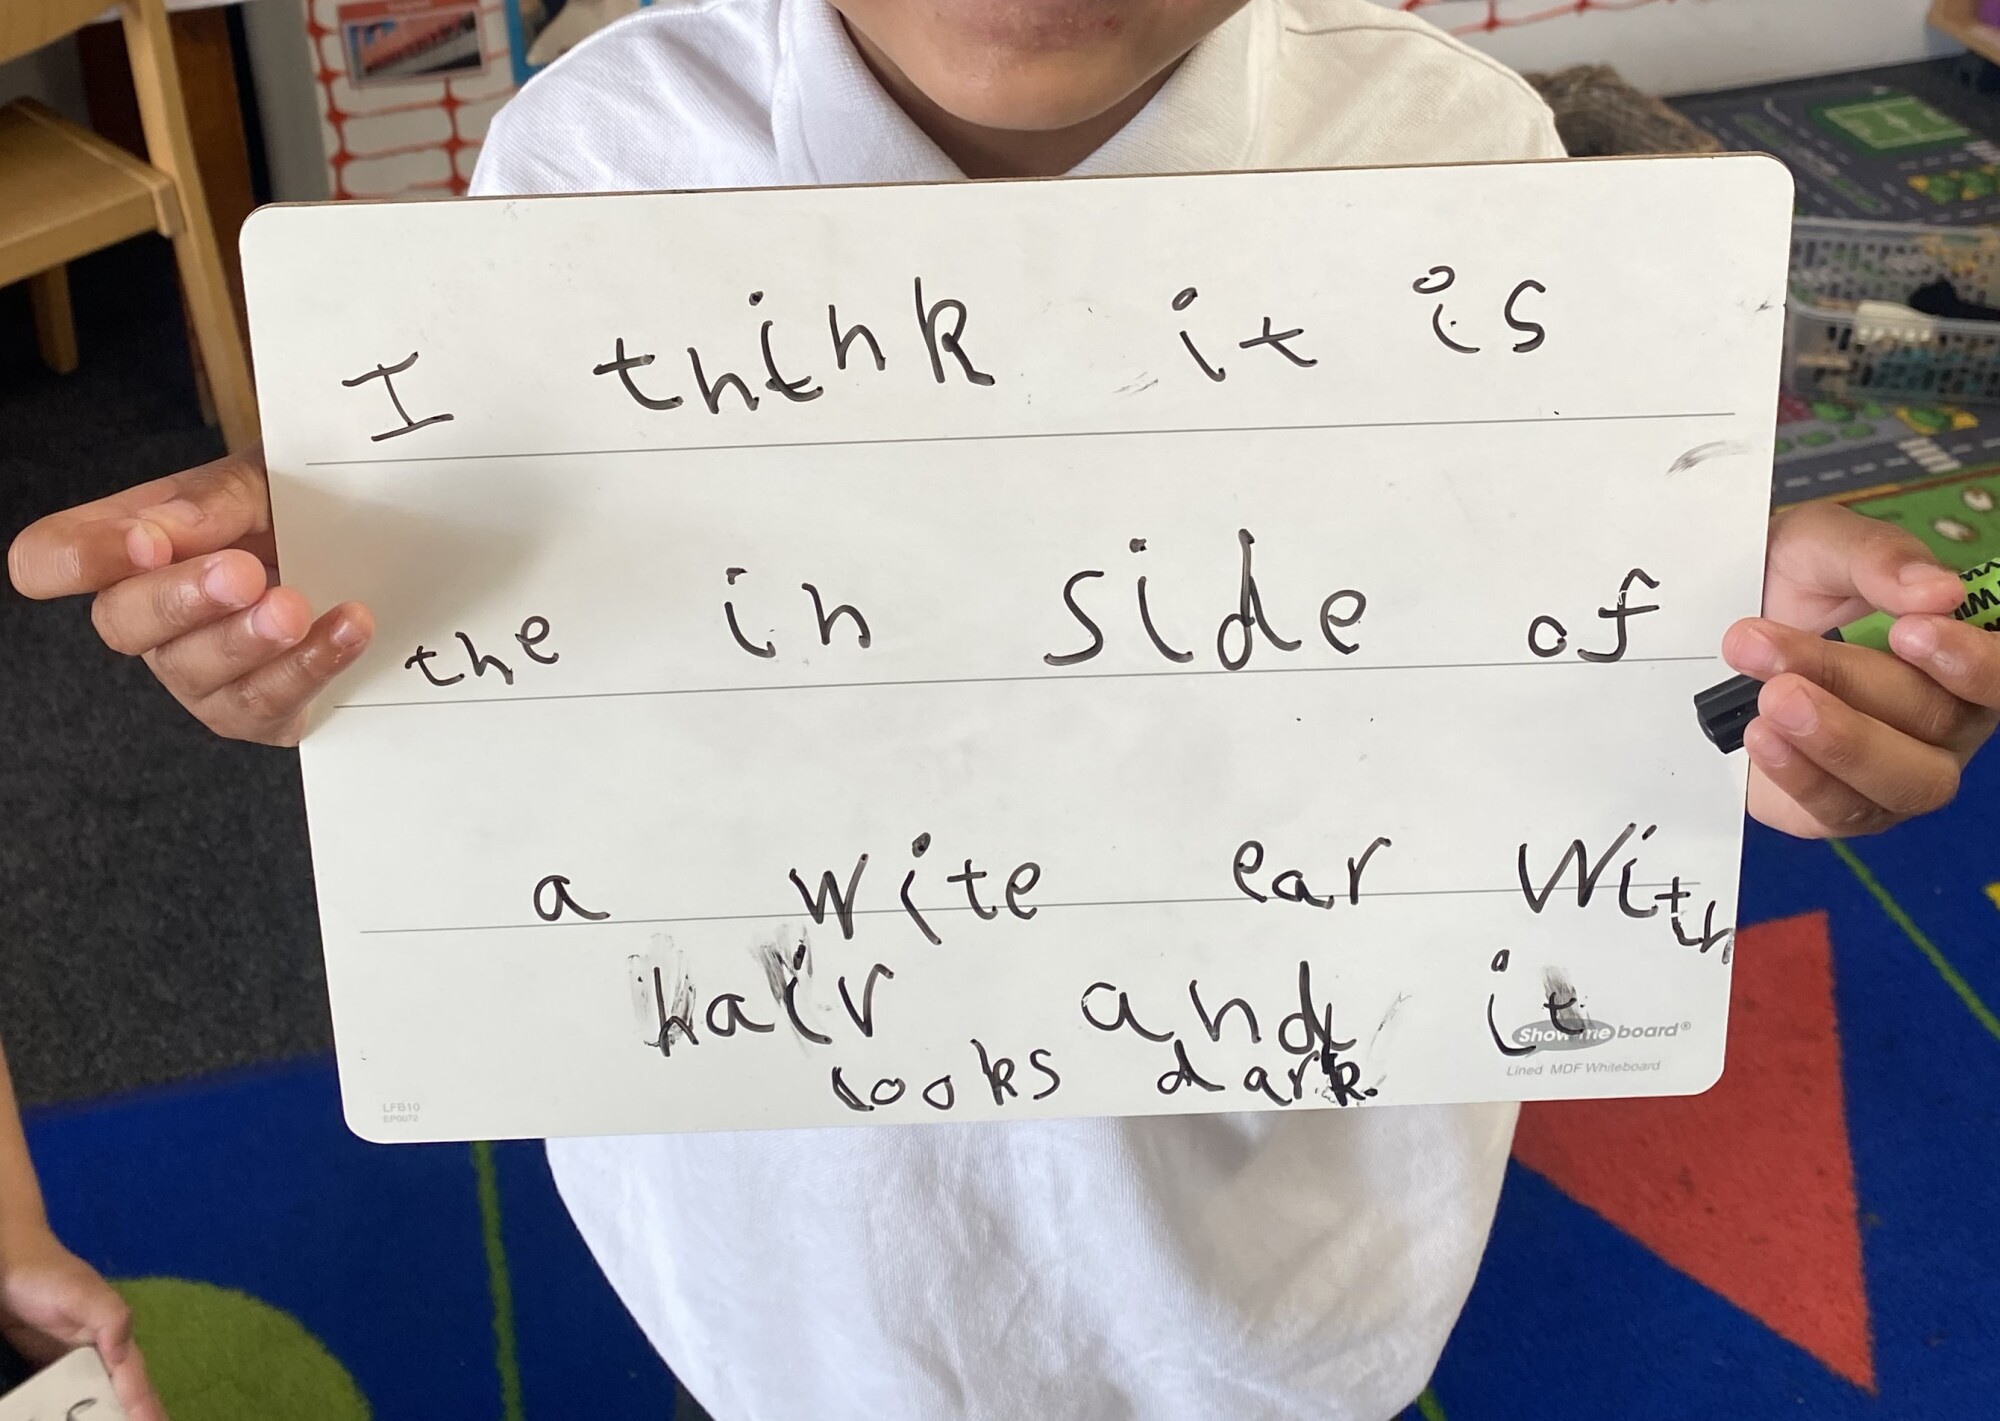 I think it is
the in side of
a write ear with
hair and it
looks dark.
Show-me board®
Lined MDF Whiteboard
LFB10
EP0072